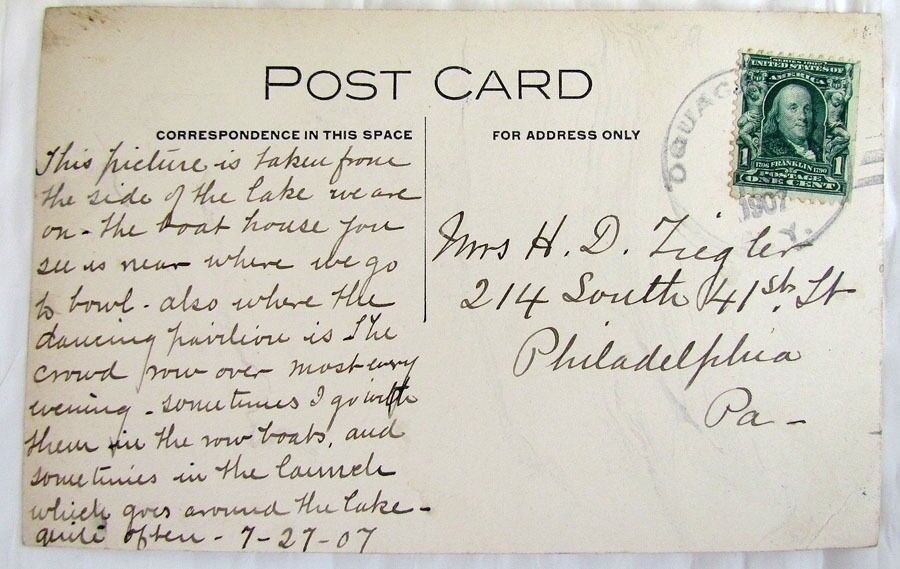 POST CARD
CORRESPONDENCE IN THIS SPACE
FOR ADDRESS ONLY
This picture is taken from
the side of the lake we are
on - the boat house you
see is near where we go
to bowl - also where the
dancing pavilion is The
crowd row over most every
evening - sometimes I go with
them in the row boats, and
sometimes in the launch
which goes around the lake -
quite often - 7-27-07
Mrs H. D. Ziegler
214 South 41st. St
Philadelphia
Pa -
SERIES 1902
UNITED STATES OF
AMERICA
1706 FRANKLIN 1790
1 1
POSTAGE
ONE CENT
OQUAG
1907
Y.